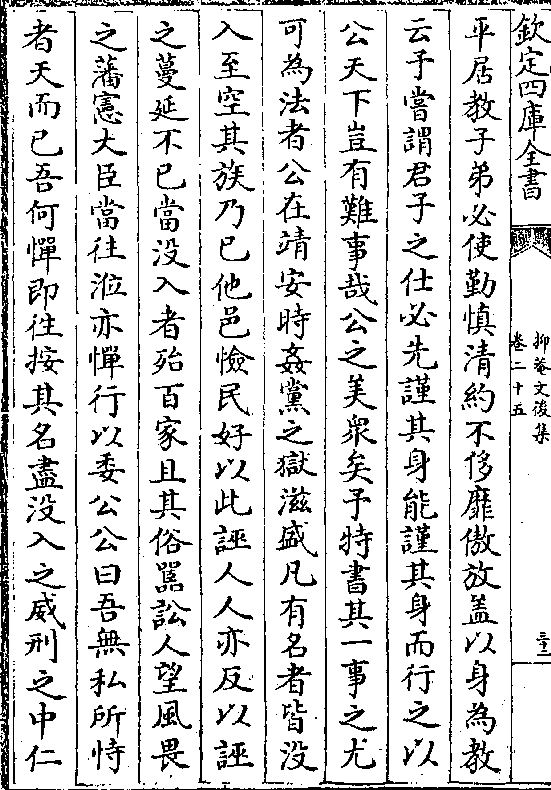 欽定四庫全書
抑菴文後集
卷二十五
三十一
平居教子弟必使勤慎清約不侈靡傲放盖以身為教
云予嘗謂君子之仕必先謹其身能謹其身而行之以
公天下豈有難事哉公之美衆矣予特書其一事之尤
可為法者公在靖安時姦黨之獄滋盛凡有名者皆没
入至空其族乃已他邑憸民好以此誣人人亦反以誣
之蔓延不已當没入者殆百家且其俗嚚訟人望風畏
之藩憲大臣當往涖亦憚行以委公公曰吾無私所恃
者天而已吾何憚即往按其名盡没入之威刑之中仁